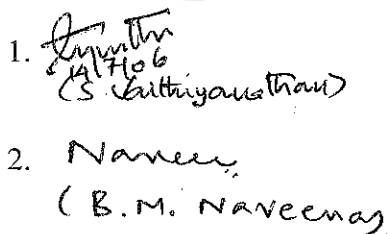 1.
14/7/06
(S. Vaithiyanathan)
2. Naveen
(B.M. Naveena)